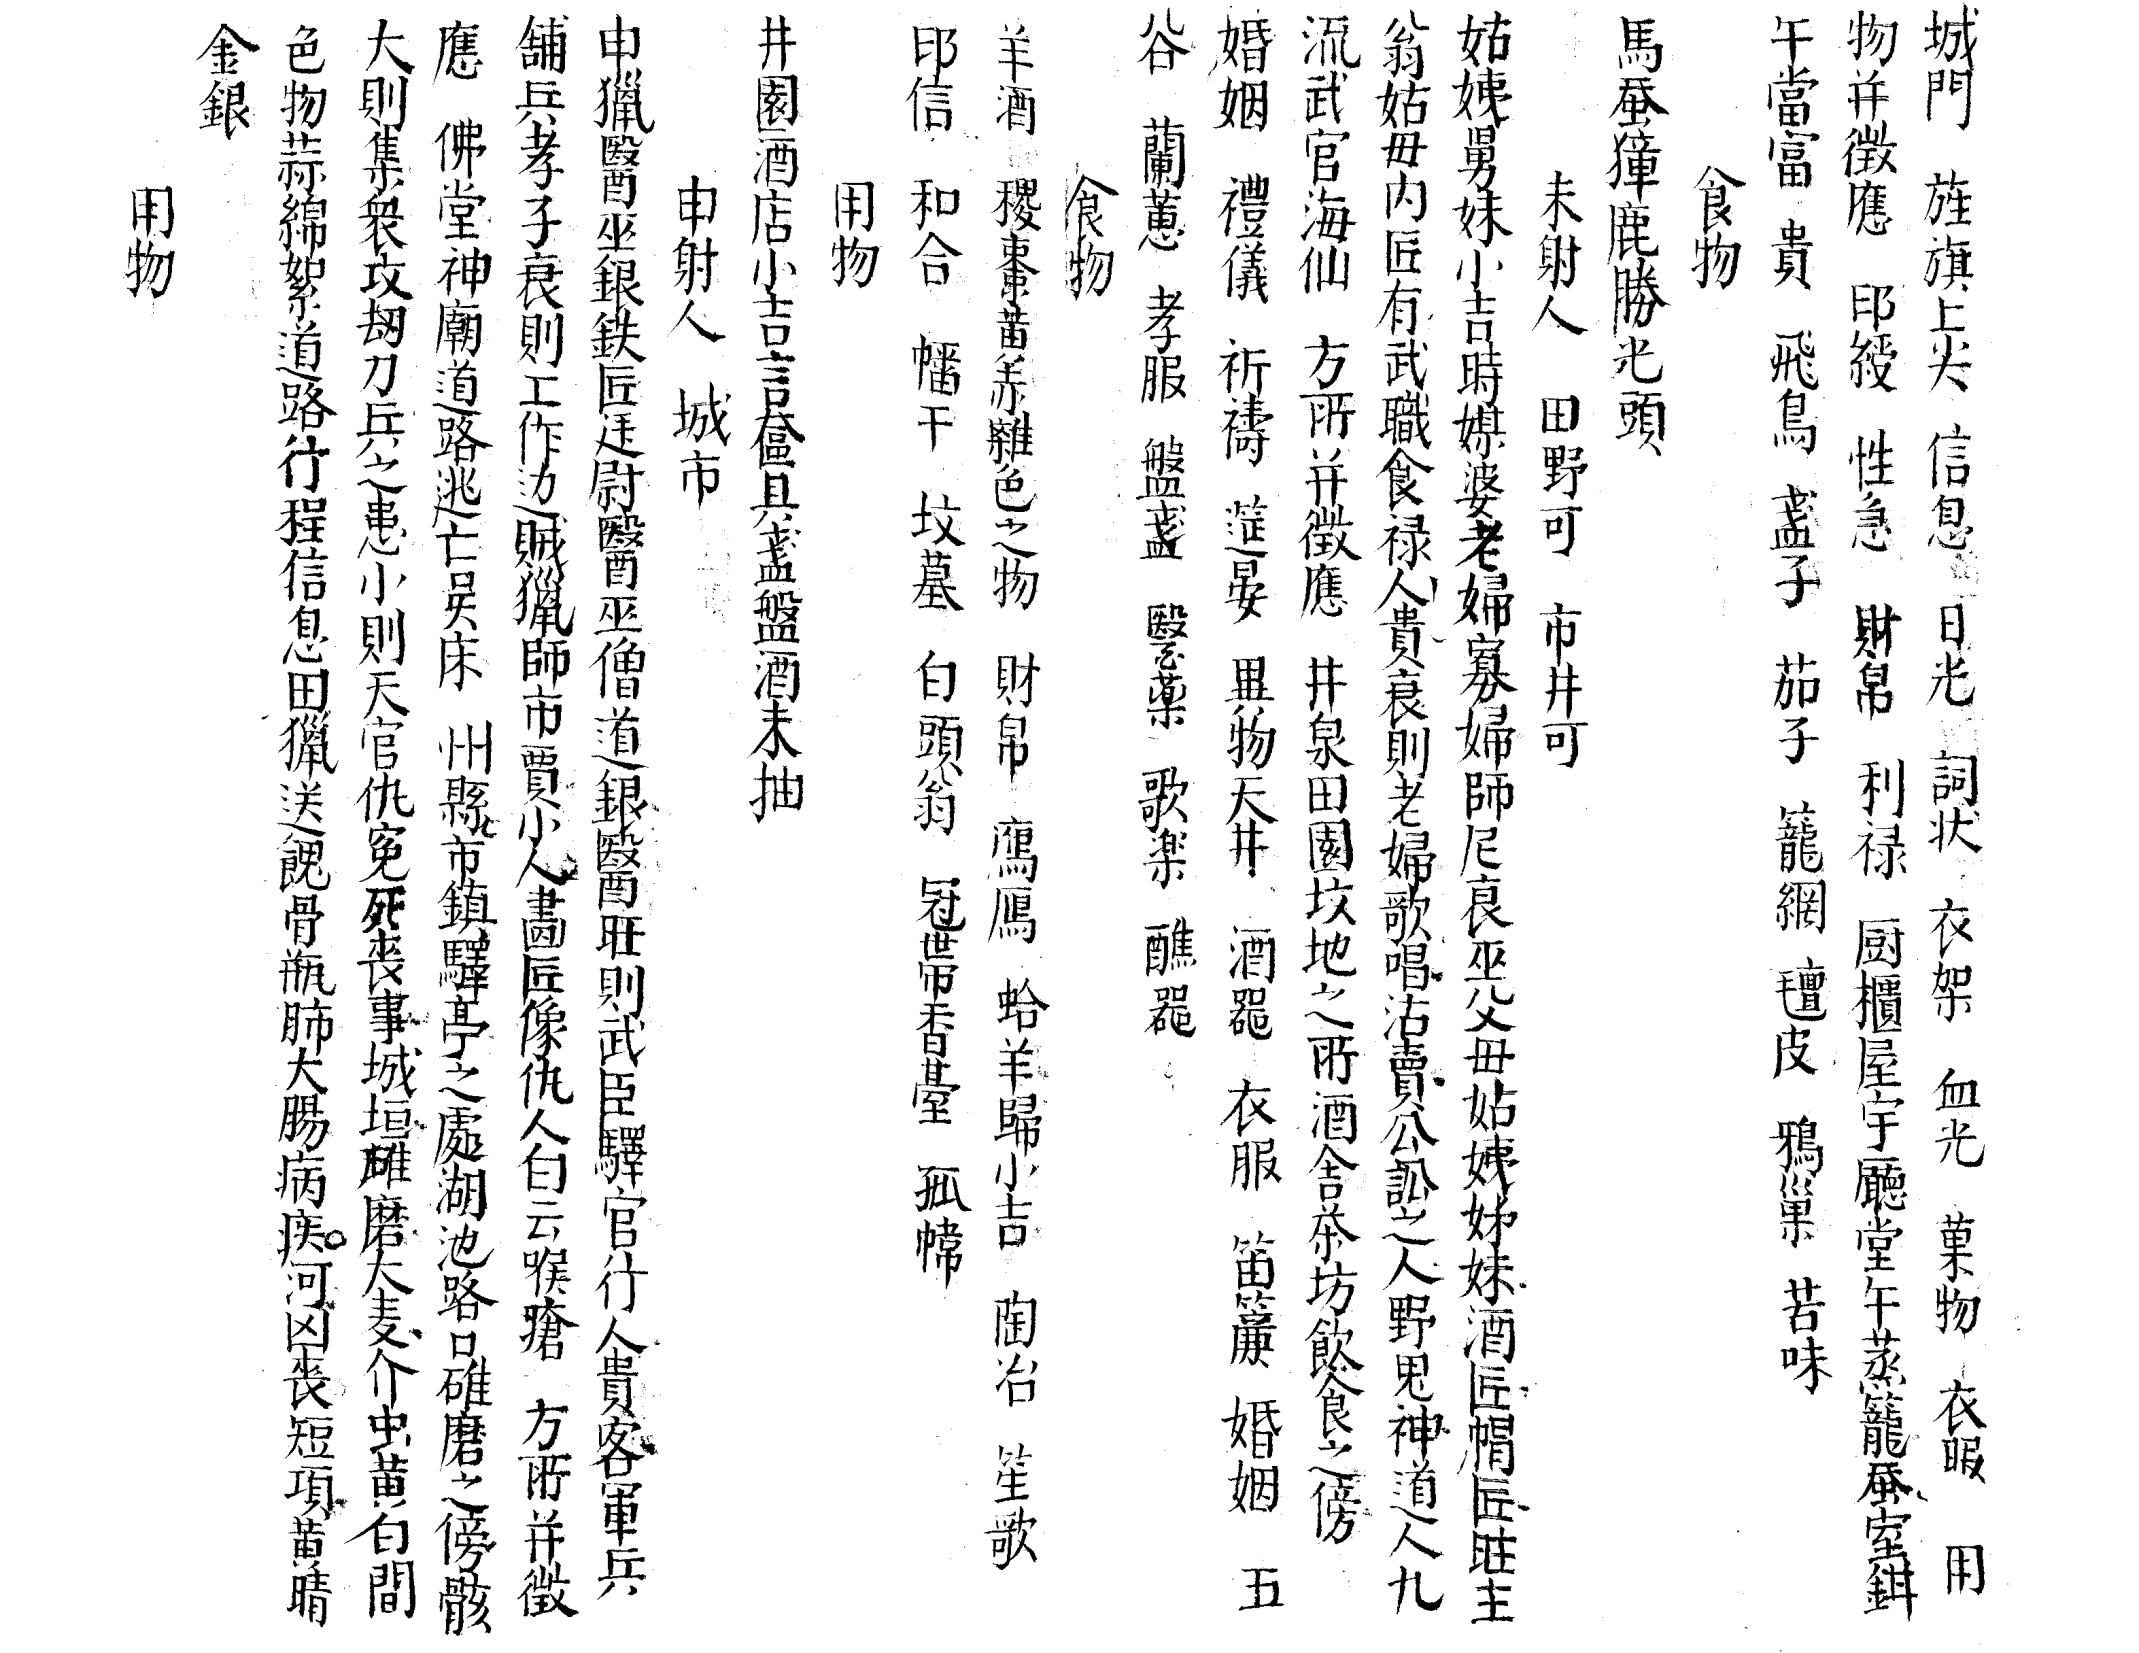 城門 旌旗上尖 信息 日光 詞状 衣架 血光 菓物 衣服 用
物并徵應 印綬 性急 財帛 利禄 厨櫃屋宇廳堂午蒸籠蚕室鉺
午當富 貴 飛鳥 盞子 茄子 籠網 氊皮 鴉巢 苦味
食物
馬蚕獐鹿勝光頭
未射人 田野可 市井可
姑姨舅妹小吉時媒婆老婦寡婦師尼哀巫父毌姑姨姊妹酒匠帽匠旺主
翁姑毌内匠有武職食禄人貴衰則老婦歌唱沽賣公訟之人野鬼神道人九
流武官海仙 方所并徵應 井泉田園坟地之所酒舍茶坊飲食之傍
婚姻 禮儀 祈禱 筵宴 異物天井 酒噐 衣服 笛簾 婚姻 五
谷 蘭蕙 孝服 盤盞 醫藥 歌楽 醮噐
食物
羊酒 稷棗黄羔雜色之物 財帛 鴈鴈 蛤羊歸小吉 陶冶 笙歌
印信 和合 幡干 坟墓 白頭翁 冠帶香臺 孤幃
用物
井園酒店小吉言奩具盞盤酒未抽
申射人 城市
申獵醫巫銀鉄匠廷尉醫巫僧道銀醫旺則武臣驛官行人貴客軍兵
舖兵孝子衰則工作边賊獵師市賈小人畵匠像仇人白云喉瘡 方所并徵
應 佛堂神廟道路逃亡吳床 州縣市鎮驛亭之處湖池路口碓磨之傍骸
大則集衆攻刼刀兵之患小則天官仇寃死丧事城垣碓磨大麦介虫黄白間
色物蒜綿絮道路行程信息田獵送餽骨瓶肺大腸病疾河凶丧短項黄晴
金銀
用物